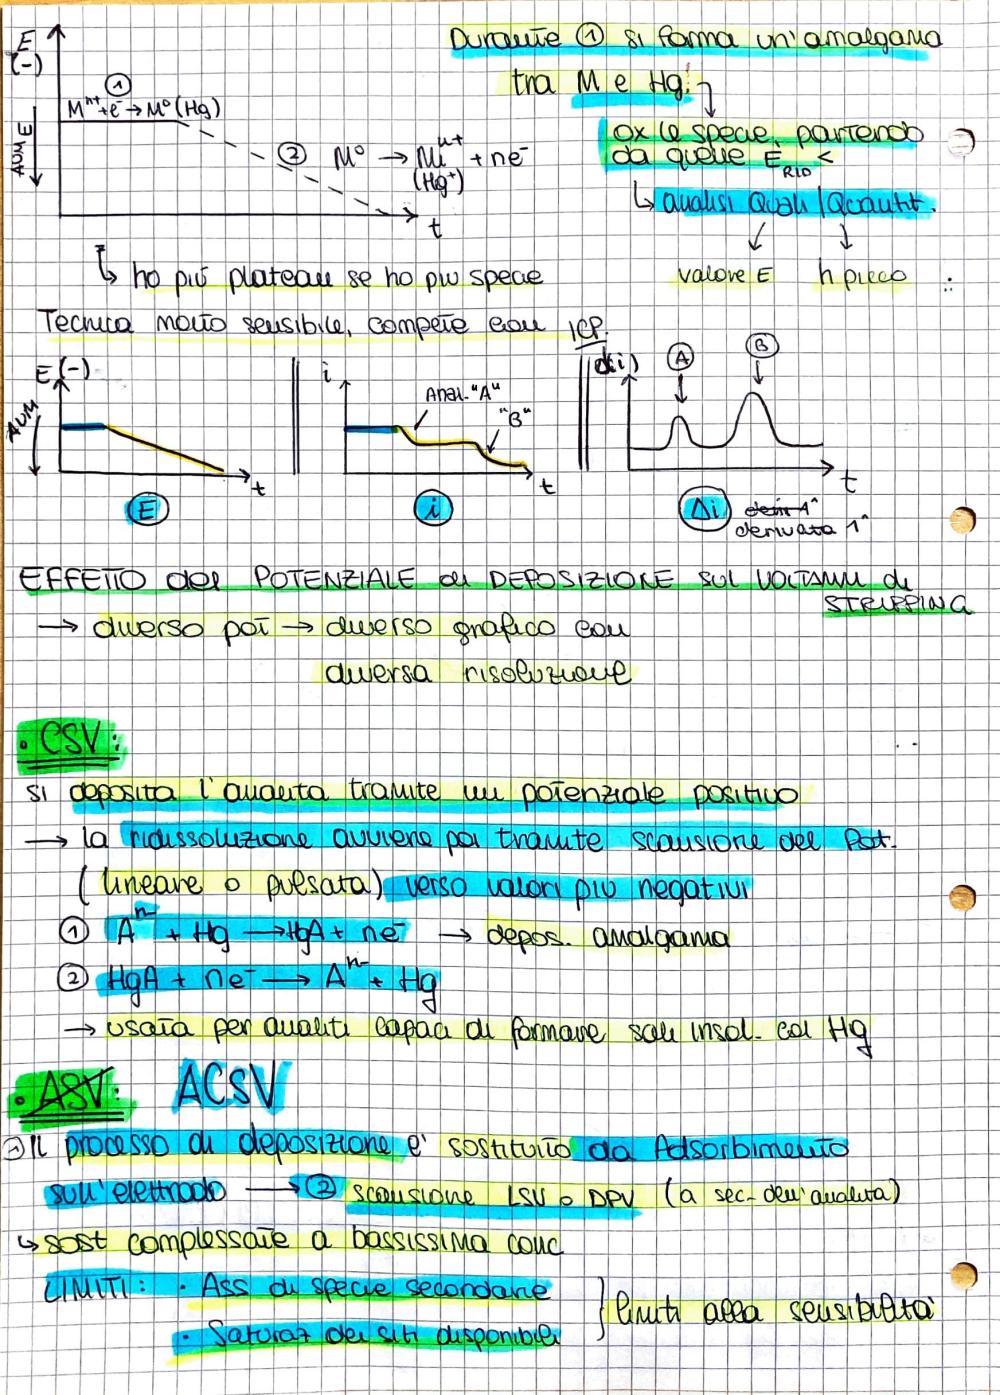 E
(-)
AUM E
①
Mⁿ⁺+e⁻→M⁰(Hg)
② M⁰ → Mⁿ⁺ + ne⁻
(Hg⁺)
t
Durante ① si forma un'amalgama
tra M e Hg.
ox le specie, partendo
da quelle E RID <
↳ analisi Quali/Quantit.
valore E h picco
↳ ho più plateau se ho più specie
Tecnica molto sensibile, compete con ICP.
E(-)
AUM
t
E
i
Anal. "A"
"B"
t
i
d(i)
A
B
t
Δi
derivata 1^
EFFETTO del POTENZIALE di DEPOSIZIONE sul VOLTAMM di
STRIPPING
→ diverso pot → diverso grafico con
diversa risoluzione
• CSV:
si deposita l'analita tramite un potenziale positivo
→ la ridissoluzione avviene poi tramite scansione del Pot.
(lineare o pulsata) verso valori più negativi
① Aⁿ⁻ + Hg → HgA + ne⁻ → depos. amalgama
② HgA + ne⁻ → Aⁿ⁻ + Hg
→ usata per analiti capaci di formare sali insol. col Hg
• ASV: ACSV
① Il processo di deposizione e' sostituito da Adsorbimento
sull'elettrodo → ② scansione LSV o DPV (a sec. dell'analita)
↳ sost complessate a bassissima conc
LIMITI: • Ass di specie secondarie
• Saturaz dei siti disponibili
} limiti alla sensibilità